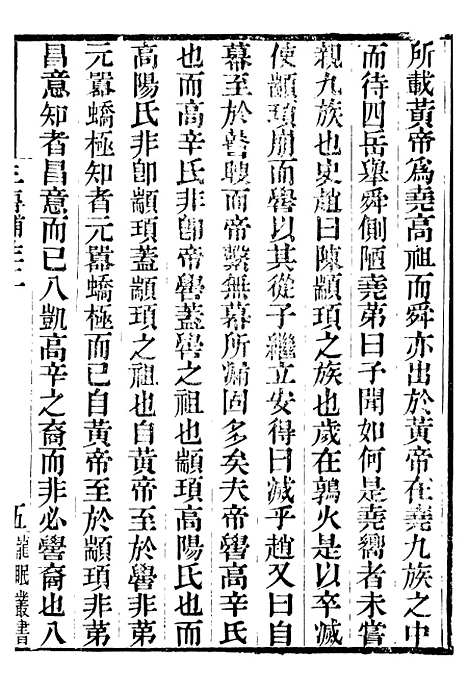 所載黃帝爲堯高祖而舜亦出於黃帝在堯九族之中
而待四岳舉舜側陋堯第曰予聞如何是堯嚮者未嘗
親九族也史趙曰陳顓頊之族也歲在鶉火是以卒滅
使顓頊崩而嚳以其從子繼立安得曰滅乎趙又曰自
幕至於瞽瞍而帝繫無幕所漏固多矣夫帝嚳高辛氏
也而高辛氏非卽帝嚳蓋嚳之祖也顓頊高陽氏也而
高陽氏非卽顓頊蓋顓頊之祖也自黃帝至於嚳非第
元囂蟜極知者元囂蟜極而已自黃帝至於顓頊非第
昌意知者昌意而已八凱高辛之裔而非必嚳裔也八
三傳補注二
五
龍眠叢書